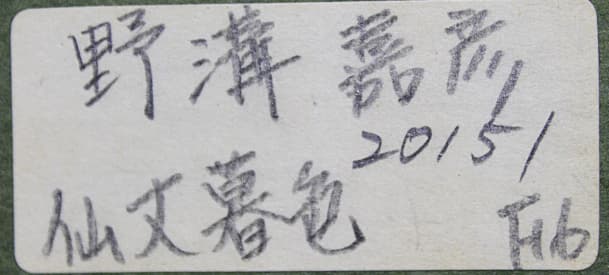 野溝 嘉彦
2015,1
仙丈暮色
F6